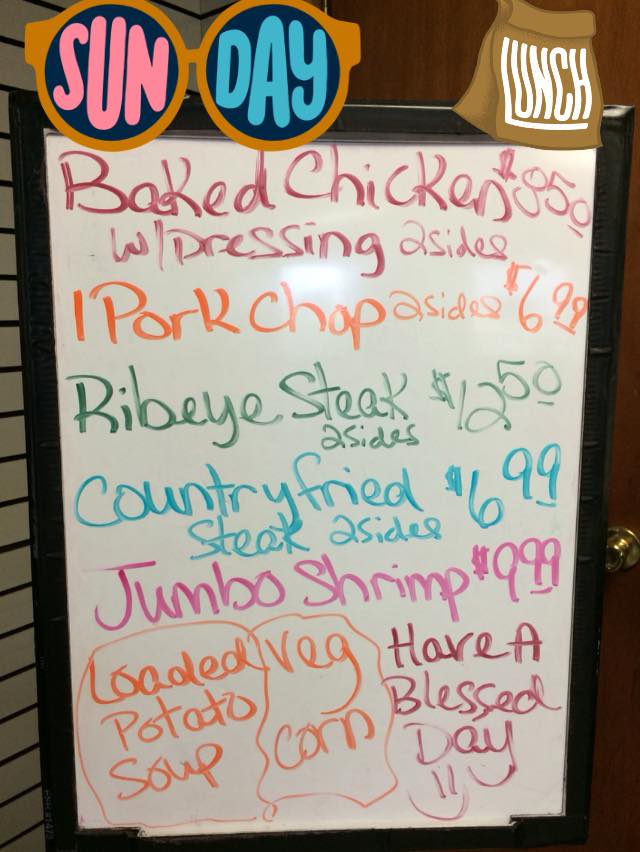 SUN DAY LUNCH
Baked Chicken $8.50
w/Dressing 2sides
1 Pork Chop 2sides $6.99
Ribeye Steak $12.50
2sides
Countryfried $6.99
Steak 2sides
Jumbo Shrimp $9.99
Loaded
Potato
Soup
Veg
Corn
Have A
Blessed
Day